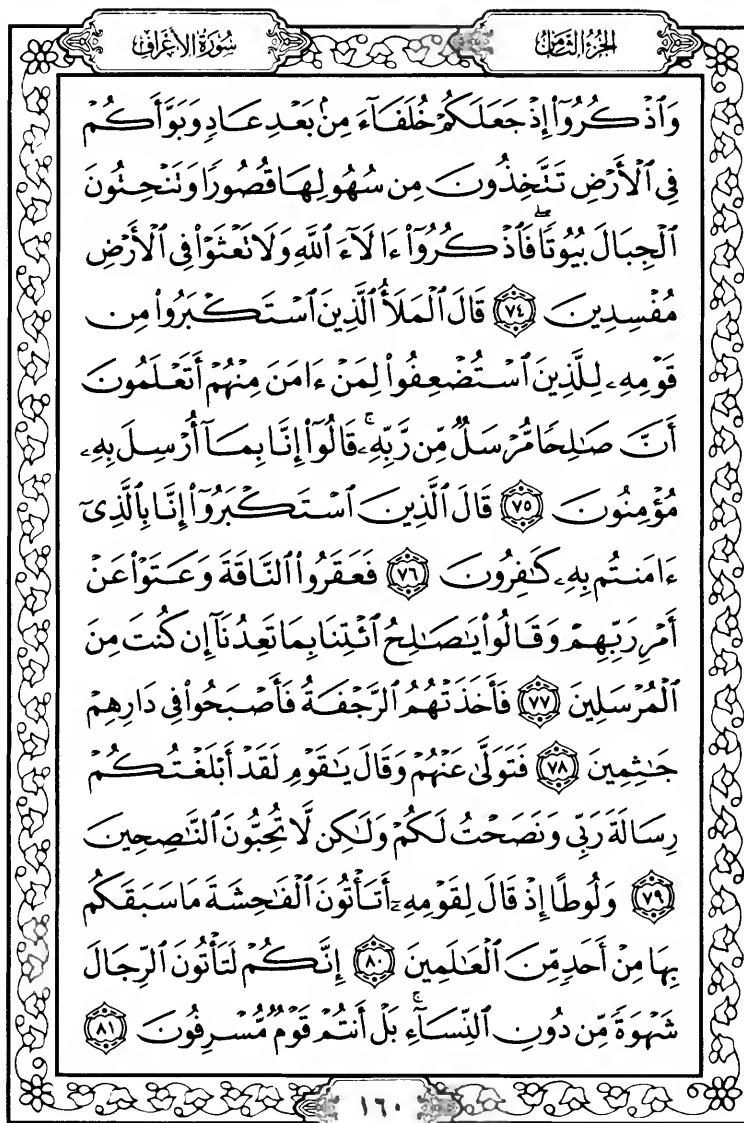 الجزء الثامن
سورة الأعراف
وَٱذْكُرُوٓا۟ إِذْ جَعَلَكُمْ خُلَفَآءَ مِنۢ بَعْدِ عَادٍ وَبَوَّأَكُمْ
فِى ٱلْأَرْضِ تَتَّخِذُونَ مِن سُهُولِهَا قُصُورًا وَتَنْحِتُونَ
ٱلْجِبَالَ بُيُوتًا ۖ فَٱذْكُرُوٓا۟ ءَالَآءَ ٱللَّهِ وَلَا تَعْثَوْا۟ فِى ٱلْأَرْضِ
مُفْسِدِينَ ۝٧٤ قَالَ ٱلْمَلَأُ ٱلَّذِينَ ٱسْتَكْبَرُوا۟ مِن
قَوْمِهِۦ لِلَّذِينَ ٱسْتُضْعِفُوا۟ لِمَنْ ءَامَنَ مِنْهُمْ أَتَعْلَمُونَ
أَنَّ صَٰلِحًا مُّرْسَلٌ مِّن رَّبِّهِۦ ۚ قَالُوٓا۟ إِنَّا بِمَآ أُرْسِلَ بِهِۦ
مُؤْمِنُونَ ۝٧٥ قَالَ ٱلَّذِينَ ٱسْتَكْبَرُوٓا۟ إِنَّا بِٱلَّذِىٓ
ءَامَنتُم بِهِۦ كَٰفِرُونَ ۝٧٦ فَعَقَرُوا۟ ٱلنَّاقَةَ وَعَتَوْا۟ عَنْ
أَمْرِ رَبِّهِمْ وَقَالُوا۟ يَٰصَٰلِحُ ٱئْتِنَا بِمَا تَعِدُنَآ إِن كُنتَ مِنَ
ٱلْمُرْسَلِينَ ۝٧٧ فَأَخَذَتْهُمُ ٱلرَّجْفَةُ فَأَصْبَحُوا۟ فِى دَارِهِمْ
جَٰثِمِينَ ۝٧٨ فَتَوَلَّىٰ عَنْهُمْ وَقَالَ يَٰقَوْمِ لَقَدْ أَبْلَغْتُكُمْ
رِسَالَةَ رَبِّى وَنَصَحْتُ لَكُمْ وَلَٰكِن لَّا تُحِبُّونَ ٱلنَّٰصِحِينَ
۝٧٩ وَلُوطًا إِذْ قَالَ لِقَوْمِهِۦٓ أَتَأْتُونَ ٱلْفَٰحِشَةَ مَا سَبَقَكُم
بِهَا مِنْ أَحَدٍ مِّنَ ٱلْعَٰلَمِينَ ۝٨٠ إِنَّكُمْ لَتَأْتُونَ ٱلرِّجَالَ
شَهْوَةً مِّن دُونِ ٱلنِّسَآءِ ۚ بَلْ أَنتُمْ قَوْمٌ مُّسْرِفُونَ ۝٨١
١٦٠